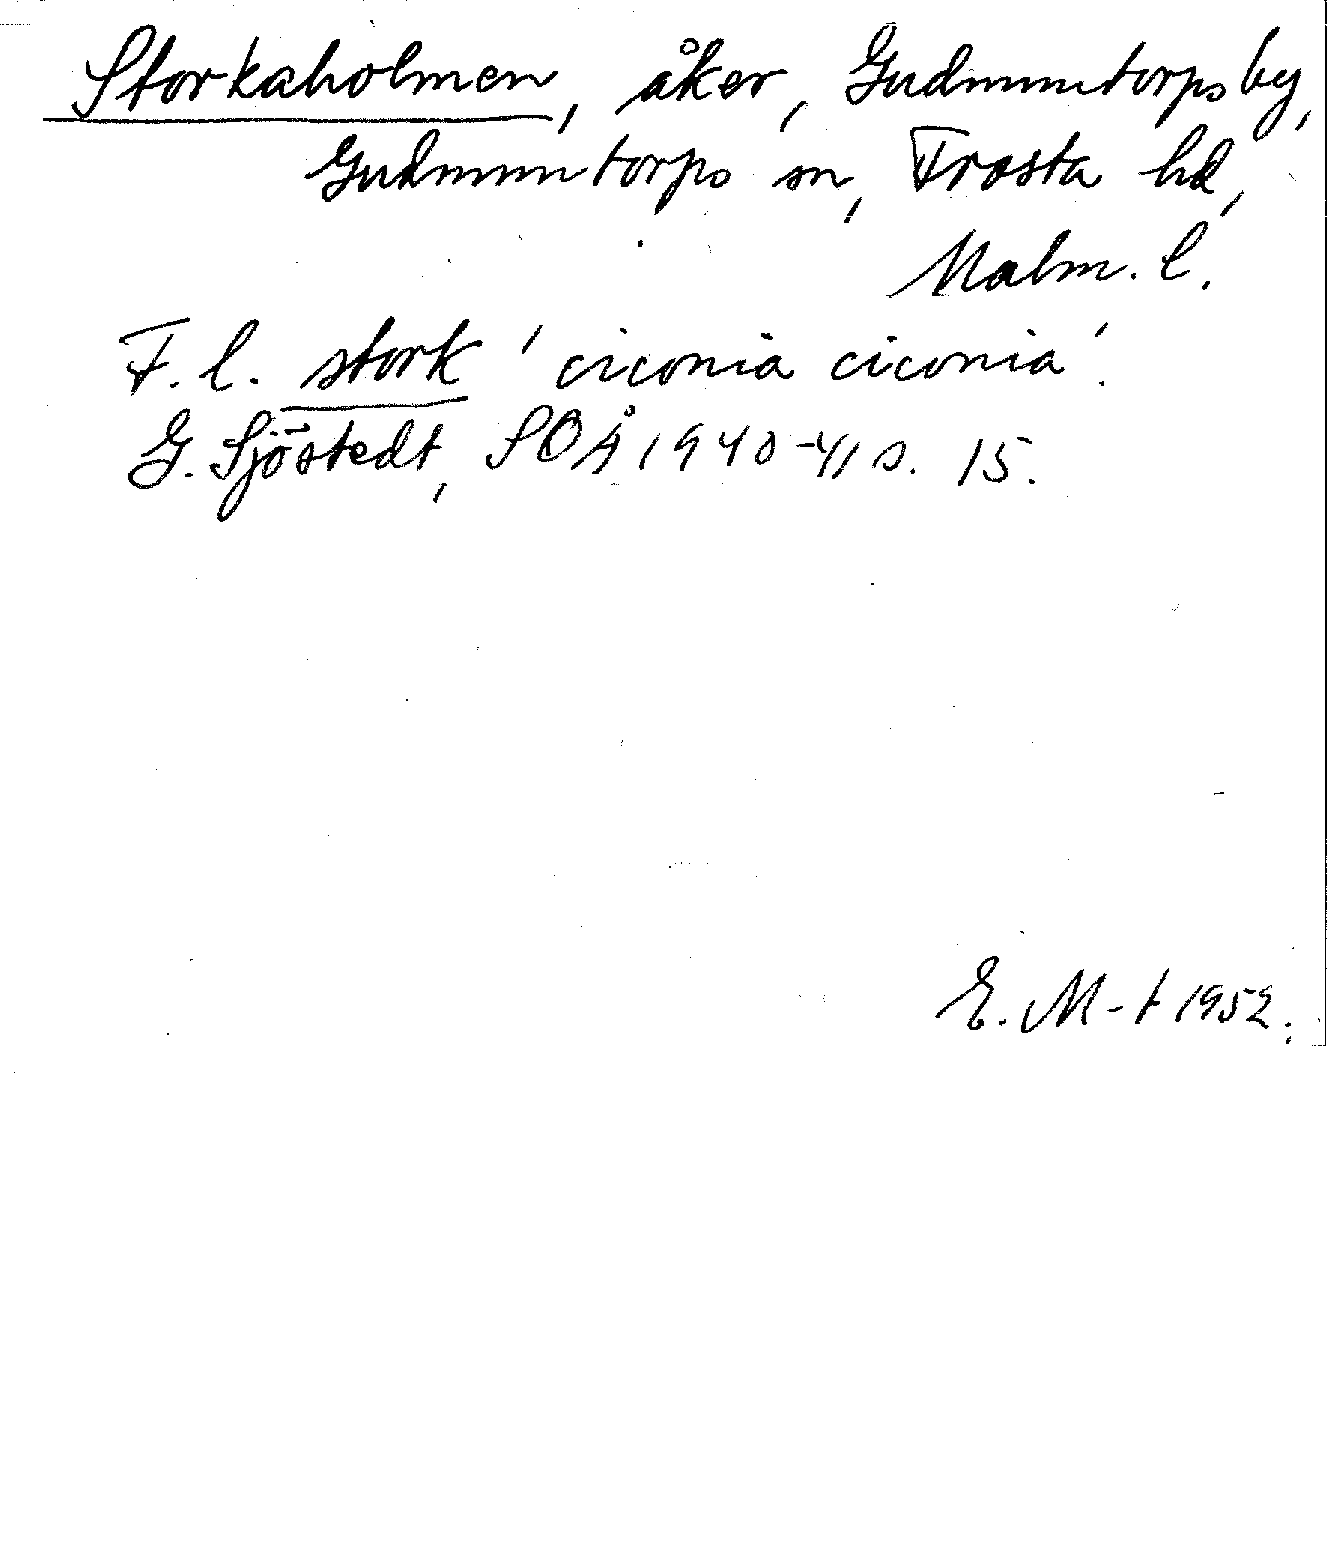 Storkaholmen, åker, Gudmuntorps by,
Gudmuntorps sn, Frosta hd,
Malm. l.
F. l. stork 'ciconia ciconia'.
G. Sjöstedt, SOÅ 1940-41 s. 15.
E. M-t 1952.